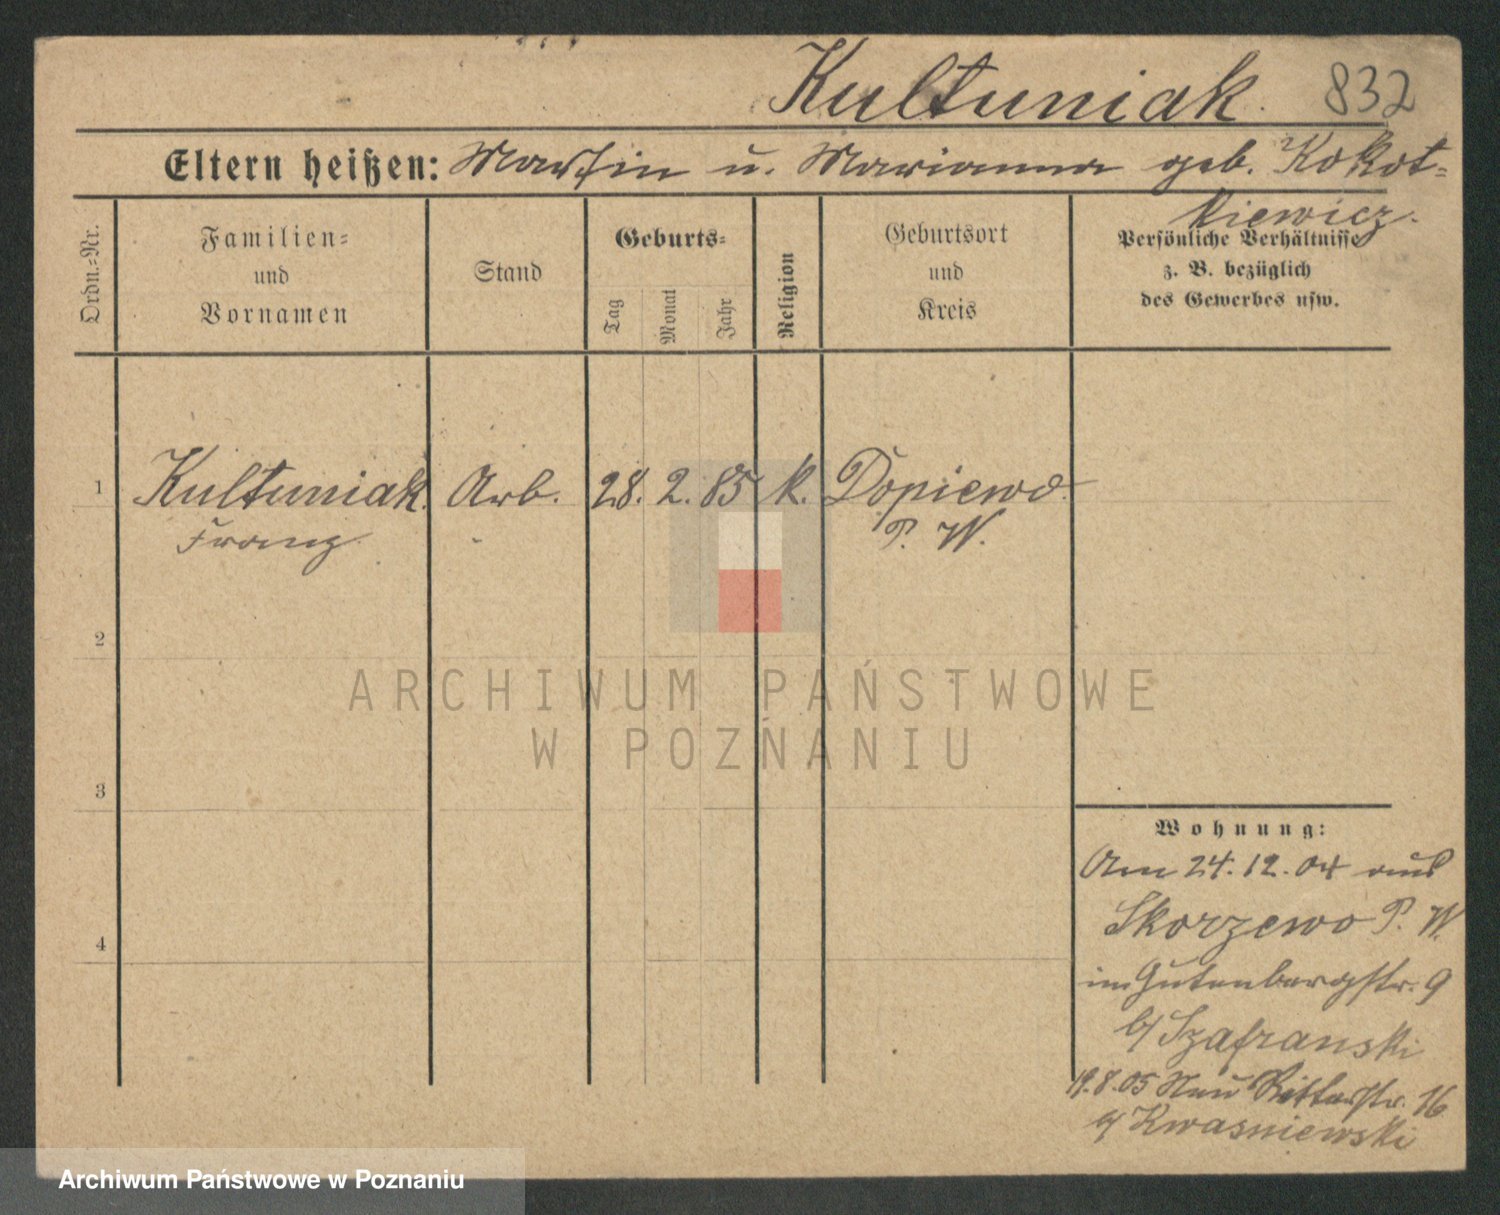 Kultuniak. 832
Eltern heißen: Martin u. Marianna geb. Kokot-
kiewicz.
Ordn.-Nr.
Familien-
und
Vornamen
Stand
Geburts-
Tag
Monat
Jahr
Religion
Geburtsort
und
Kreis
Persönliche Verhältnisse
z. B. bezüglich
des Gewerbes usw.
1 Kultuniak Arb. 28. 2. 85 k. Dopiewo
Franz P. W.
2
3
4
ARCHIWUM PAŃSTWOWE
W POZNANIU
Wohnung:
Am 24. 12. 04 aus
Skorzewo P. W.
in Gutenbergstr. 9
b/ Szafranski
19.8.05 Neu Ritterstr. 16
b/ Kwasniewski
Archiwum Państwowe w Poznaniu